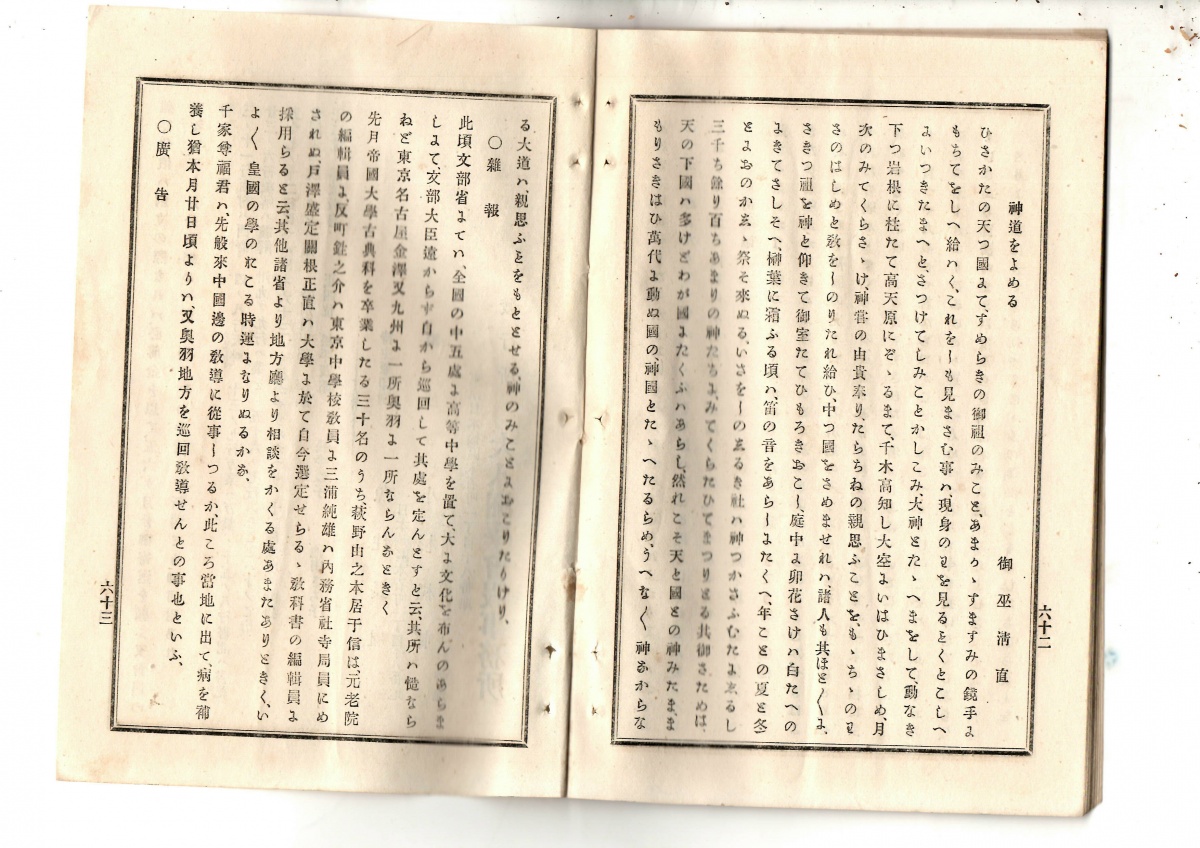 神道をよめる
御巫清直
ひさかたの天つ國よて、すめらきの御祖のみこと、あまかゝすますみの鏡手よ
もちてをしへ給ハく、これをしも見まさむ事ハ現身のワを見るとくとこしへ
よいつきたまへと、さつけてしみことかしこみ、大神とたゝへまをして、動なき
下つ岩根に柱たて高天原にぞゝるまて、千木高知し大空よいはひまさしめ、月
次のみてくらさゝけ、神嘗の由貴奉り、たらちねの親思ふことを、もゝちゝのワ
さのはしめと敎をしのりたれ給ひ、中つ國をさめませれハ、諸人も其ほとくよ、
さきつ祖を神と仰きて御室たてひもろきおこし、庭中よ卯花さけハ白たへの
よきてさしそへ、榊葉に霜ふる頃ハ、笛の音をあらしよたくへ、年ことの夏と冬
とよおのかゑゝ祭そ來ぬる、いさをしのゑるき社ハ神つかさふむたよゑるし
三千ち餘り百ちあまりの神たちよ、みてくらたひてまつりとる共御さためは、
天の下國ハ多けどわが國よたくふハあらし、然れこそ天と國との神みたまま
もりさきはひ萬代よ動ぬ國の、神國とたゝへたるらめ、うへなくゝ神ながらな
六十二
る大道ハ親思ふとをもととせる神のみことよおこりたりけり、
〇雜報
此頃文部省よてハ、全國の中五處よ高等中學を置て、大よ文化を布んのあらま
しよて、文部大臣遠からず自から巡回して其處を定んとすと云、其所ハ慥なら
ねど東京名古屋金澤又九州よ一所奥羽よ一所ならんなどきく
先月帝國大學古典科を卒業したる三十名のうち萩野由之木居于信は、元老院
の編輯員よ、反町鉎之介ハ東京中學校敎員よ三浦純雄ハ內務省社寺局員にめ
されぬ戸澤盛定關根正直ハ大學よ於て自今選定せらるゝ敎科書の編輯員よ
採用らると云、其他諸省より地方廳より相談をかくる處あまたありときく、い
よく皇國の學のおこる時運よなりぬるかな、
千家尊福君ハ、先般來中國邊の敎導に從事しつるか、此ころ當地に出て、病を補
養し猶本月廿日頃よりハ又奥羽地方を巡回敎導せんとの事也といふ、
〇廣告
六十三